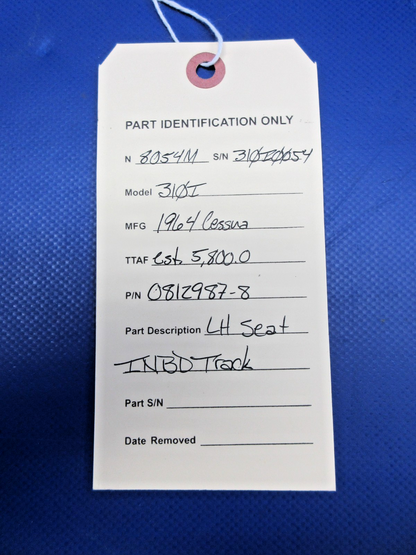 PART IDENTIFICATION ONLY
N 8054M S/N 310I0054
Model 310I
MFG 1964 Cessna
TTAF est. 5,800.0
P/N 0812987-8
Part Description LH Seat
INBD Track
Part S/N
Date Removed